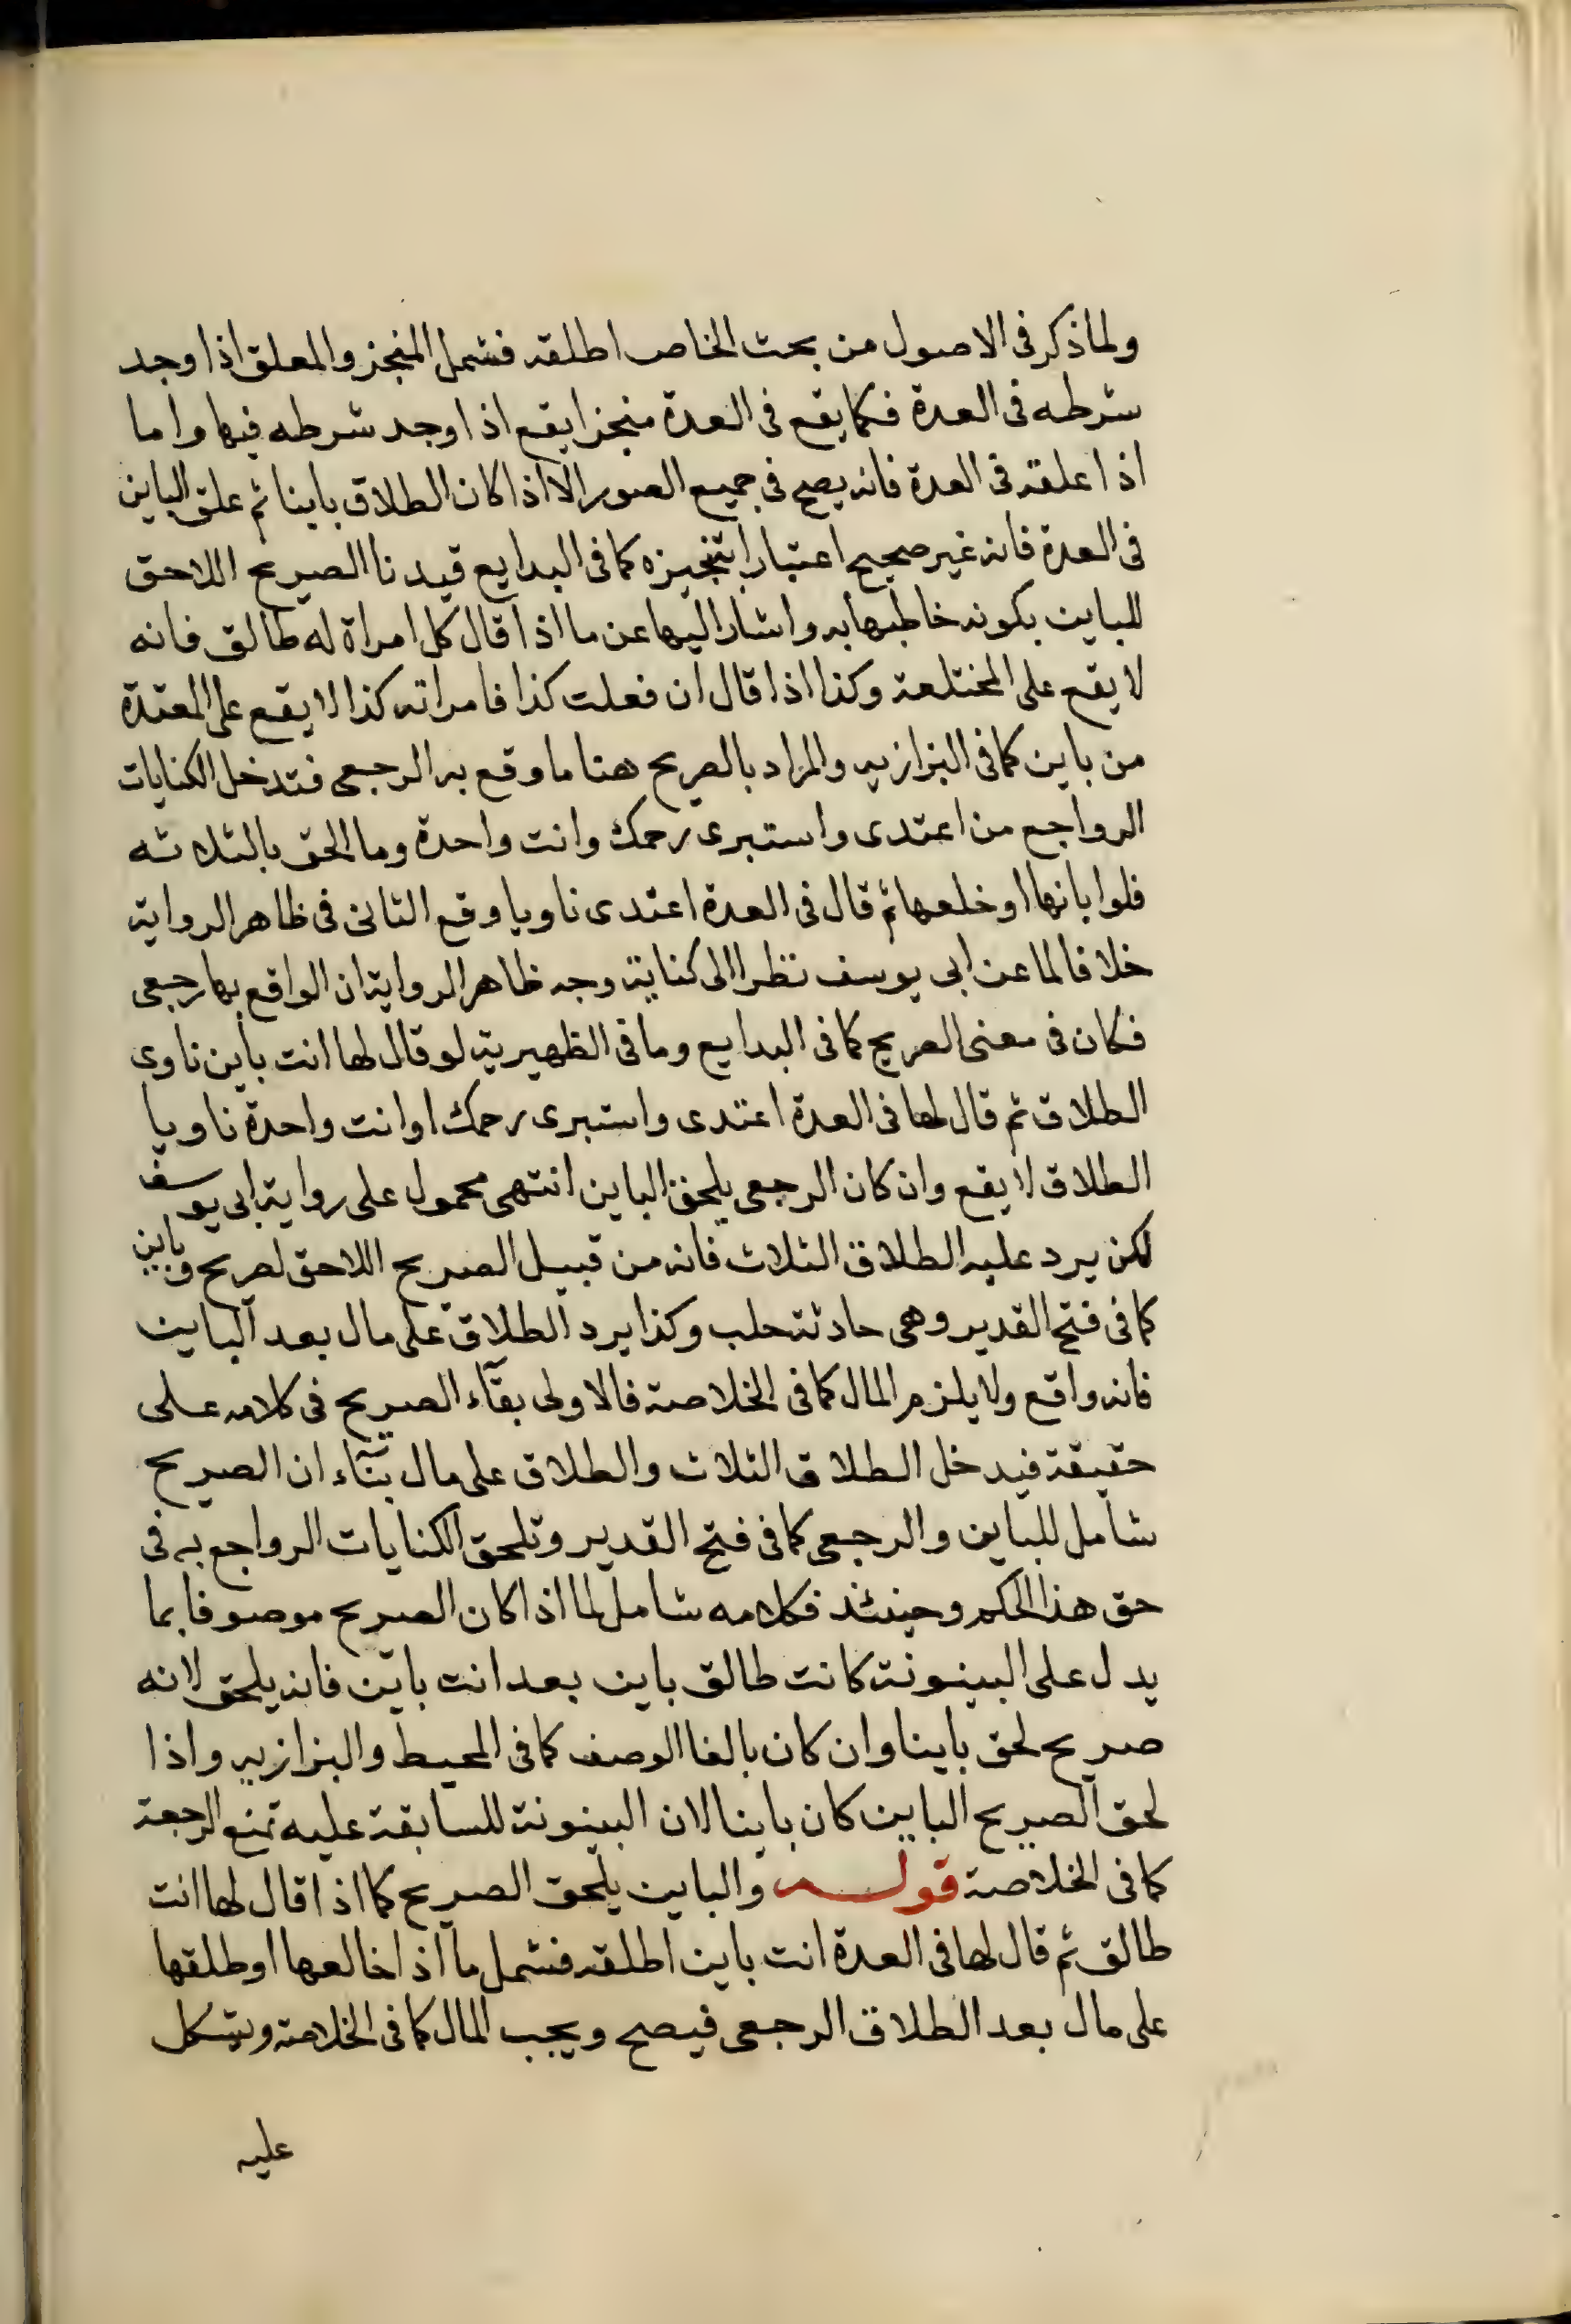 ولما ذكر فى الاصول من بحث الخاص اطلقه فشمل المنجز والمعلق اذا وجد
شرطه فى العدة فكما يقع فى العدة منجزا يقع اذا وجد شرطه فيها واما
اذا علقه فى العدة فانه يصح فى جميع الصور الا اذا كان الطلاق باينا ثم علق الباين
فى العدة فانه غير صحيح اعتبارا بتنجيزه كما فى البدايع قيدنا الصريح اللاحق
للباين بكونه خاطبها به واشار اليها عن ما اذا قال كل امراة له طالق فانه
لا يقع على المختلعة وكذا اذا قال ان فعلت كذا فامراته كذا لا يقع على المعتدة
من باين كما فى البزازيه والمراد بالصريح هنا ما وقع به الرجعى فتدخل الكنايات
الرواجع من اعتدى واستبرى رحمك وانت واحدة وما الحق بالثلاثه
فلو ابانها او خلعها ثم قال فى العدة اعتدى ناويا وقع الثانى فى ظاهر الرواية
خلافا لما عن ابى يوسف نظرا الى كناية وجه ظاهر الرواية ان الواقع بها رجعى
فكان فى معنى الصريح كما فى البدايع وما فى الظهيرية لو قال لها انت باين ناوى
الطلاق ثم قال لها فى العدة اعتدى واستبرى رحمك او انت واحدة ناويا
الطلاق لا يقع وان كان الرجعى يلحق الباين انتهى محمول على رواية ابى يوسف
لكن يرد عليه الطلاق الثلاث فانه من قبيل الصريح اللاحق لصريح وباين
كما فى فتح القدير وهى حادثة حلب وكذا يرد الطلاق على مال بعد الباين
فانه واقع ولا يلزم المال كما فى الخلاصة فالاولى بقآء الصريح فى كلامه على
حقيقة فيدخل الطلاق الثلاث والطلاق على مال بنآء ان الصريح
شامل للباين والرجعى كما فى فتح القدير وتلحق الكنايات الرواجع به فى
حق هذا الحكم وحينئذ فكلامه شامل لما اذا كان الصريح موصوفا بما
يدل على البينونة كانت طالق باين بعد انت باين فانه يلحق لانه
صريح لحق باينا وان كان بالغا الوصف كما فى المحيط والبزازيه واذا
لحق الصريح الباين كان باينا لان البينونة للسابقة عليه تمنع الرجعة
كما فى الخلاصة قوله والباين يلحق الصريح كما اذا قال لها انت
طالق ثم قال لها فى العدة انت باين اطلقه فشمل ما اذا خالعها او طلقها
على مال بعد الطلاق الرجعى فيصح ويجب المال كما فى الخلاصة ويشكل
عليه